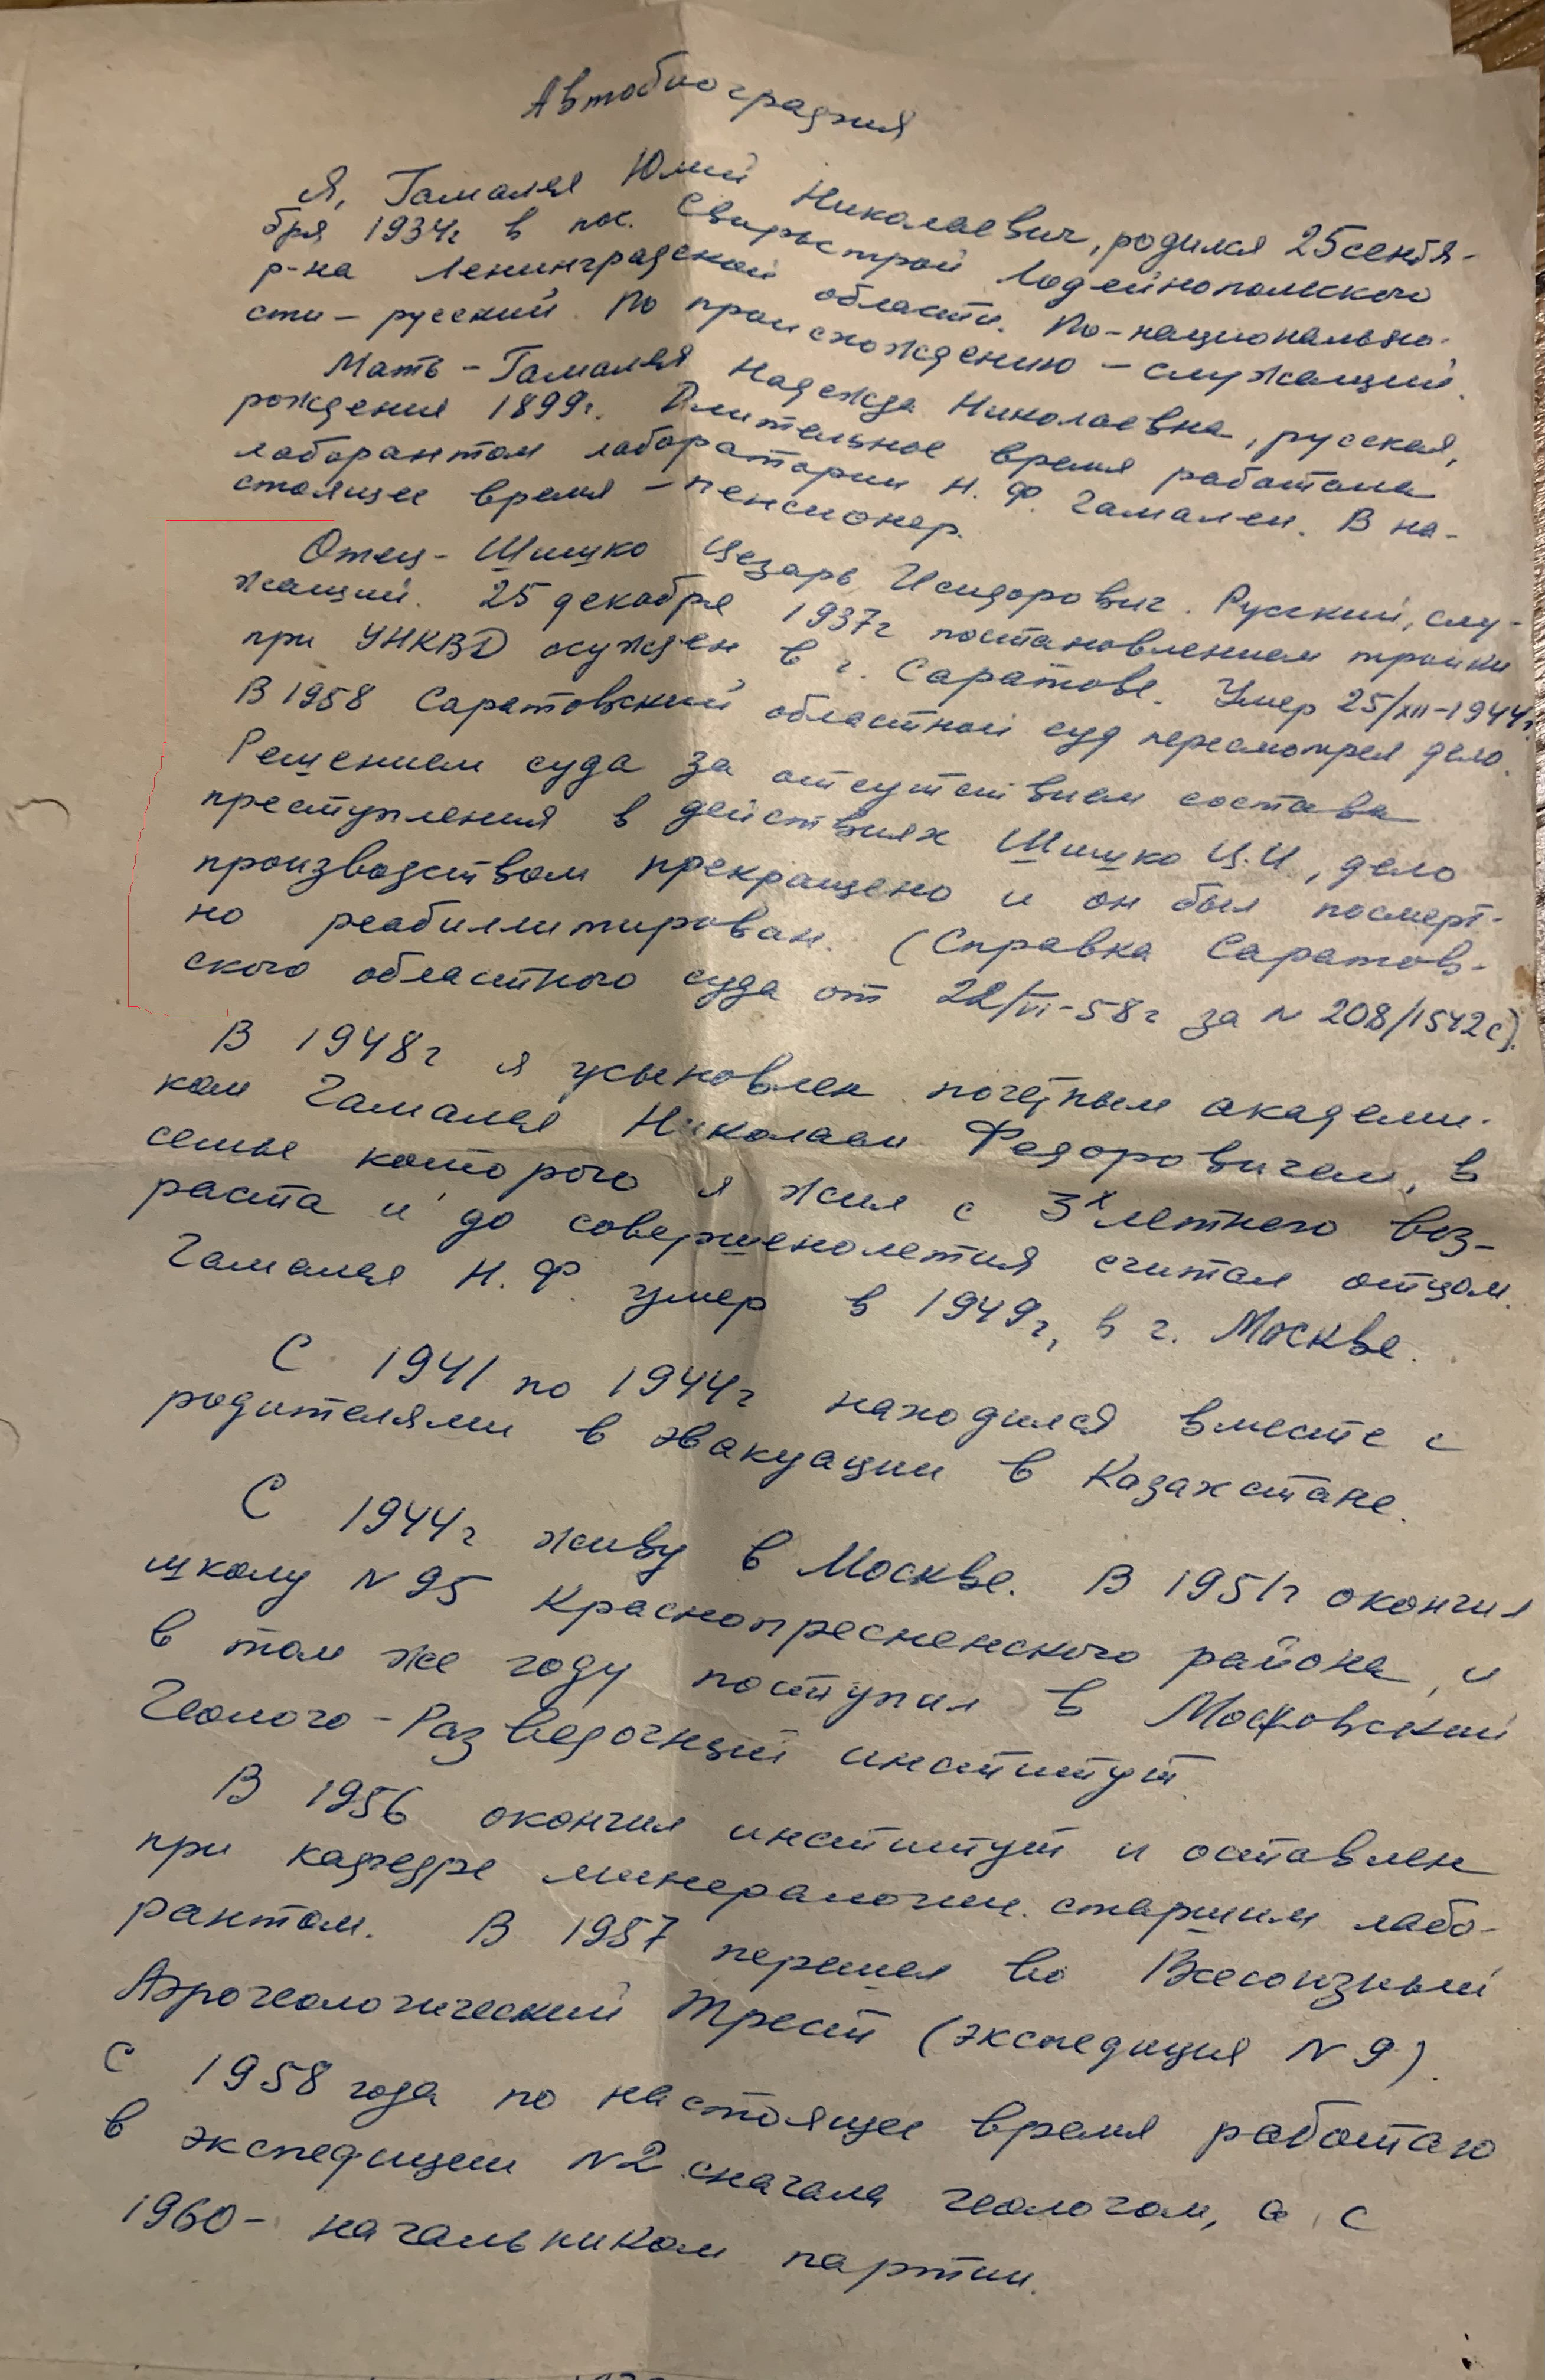 Автобиография
Я, Гамалея Юлий Николаевич, родился 25 сентя-
бря 1934г в пос. Свирьстрой Лодейнопольского
р-на Ленинградской области. По-национально-
сти – русский. По происхождению – служащий.
Мать – Гамалея Надежда Николаевна, русская,
рождения 1899г. Длительное время работала
лаборантом лаборатории Н. Ф. Гамалеи. В на-
стоящее время – пенсионер.
Отец – Шишко Цезарь Исидорович. Русский, слу-
жащий. 25 декабря 1937г постановлением тройки
при УНКВД осужден в г. Саратове. Умер 25/XII-1944г.
В 1958 Саратовский областной суд пересмотрел дело.
Решением суда за отсутствием состава
преступления в действиях Шишко Ц.И, дело
производством прекращено и он был посмерт-
но реабиллитирован. (Справка Саратов-
ского областного суда от 22/VI-58г за N 208/1542с).
В 1948г я усыновлен почётным академи-
ком Гамалея Николаем Федоровичем, в
семье которого я жил с 3х летнего воз-
раста и до совершенолетия считал отцом.
Гамалея Н. Ф. умер в 1949г, в г. Москве.
С 1941 по 1944г находился вместе с
родителями в эвакуации в Казахстане.
С 1944г живу в Москве. В 1951г окончил
школу N 95 Краснопресненского района, и
в том же году поступил в Московский
Геолого-Разведочный институт.
В 1956 окончил институт и оставлен
при кафедре минералогии старшим лабо-
рантом. В 1957 перешел во Всесоюзный
Аэрогеологический Трест (экспедиция N 9).
С 1958 года по настоящее время работаю
в экспедиции N2 сначала геологом, а с
1960 – начальником партии.